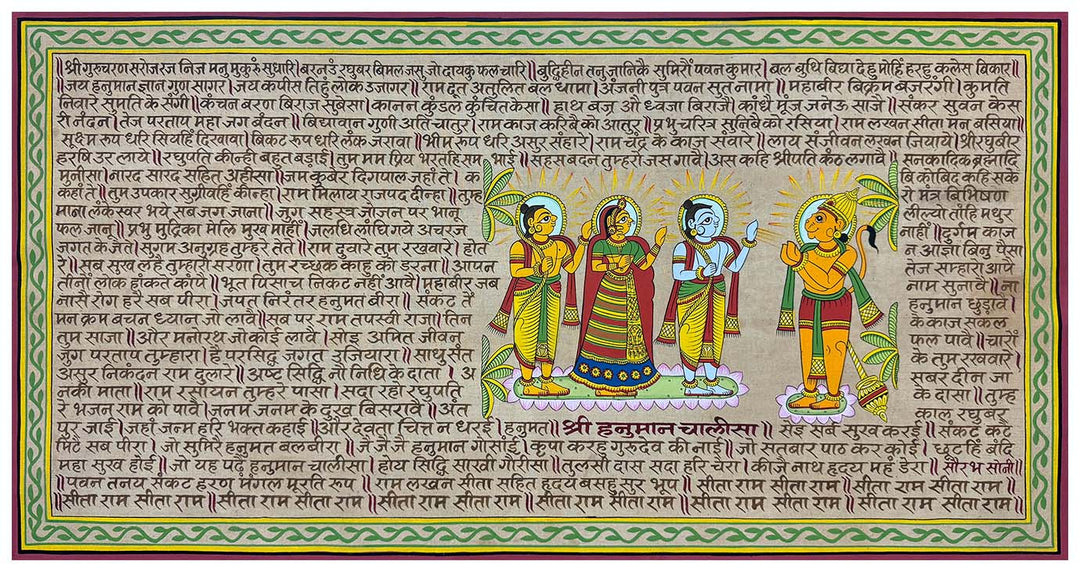 ॥श्री गुरुचरण सरोजरज निज मनु मुकुरु सुधारि।बरनउं रघुबर बिमल जसु जो दायकु फल चारि॥बुद्धिहीन तनु जानिकै सुमिरौं पवन कुमार।बल बुधि विद्या देहु मोहिं हरहु कलेस विकार॥
॥जय हनुमान ज्ञान गुण सागर।जय कपीस तिहुं लोक उजागर॥राम दूत अतुलित बल धामा।अंजनी पुत्र पवन सुत नामा॥महाबीर बिक्रम बजरंगी।कुमति
निवार सुमति के संगी॥कंचन बरण बिराज सुबेसा।कानन कुंडल कुंचित केसा॥हाथ बज्र औ ध्वजा बिराजै।कांधे मूंज जनेऊ साजे॥संकर सुवन केस
री नंदन।तेज परताप महा जग बंदन॥बिद्यावान गुणी अति चातुर।राम काज करिबै को आतुर॥प्रभु चरित्र सुनिबै को रसिया।राम लखन सीता मन बसिया॥
सूक्ष्म रूप धरि सियहिं दिखावा।बिकट रूप धरि लंक जरावा॥भीम रूप धरि असुर संहारे।राम चंद्र के काज संवारे॥लाय संजीवन लखन जियाये।श्री रघुबीर
हरषि उर लाये॥रघुपति कीन्ही बहुत बड़ाई।तुम मम प्रिय भरतहि सम भाई॥सहस बदन तुम्हरो जस गावे।अस कहि श्रीपति कंठ लगावे॥सनकादिक ब्रह्मादि
मुनीसा।नारद सारद सहित अहीसा॥जम कुबेर दिगपाल जहां ते। क बि कोबिद कहि सके
कहां ते॥तुम उपकार सुग्रीवहिं कीन्हा।राम मिलाय राजपद दीन्हा॥तुम्ह रो मंत्र बिभिषण
माना लंकेस्वर भये सब जग जाना॥जुग सहस्त्र जोजन पर भानू लील्यो तांहि मधुर
फल जानू॥प्रभु मुद्रिका मेलि मुख माहीं।जलधि लांघि गये अचरज नाहीं॥दुर्गम काज
जगत के जेते।सुगम अनुग्रह तुम्हरे तेते॥राम दुवारे तुम रखवारे।होत न आज्ञा बिनु पैसा
रे॥सब सुख लहै तुम्हारी सरणा।तुम रच्छक काहु को डरना॥आपन तेज सम्हारो आपे
तीनों लोक हांकतें कांपे॥भूत पिसाच निकट नहीं आवे।महाबीर जब नाम सुनावे॥ना
नासै रोग हरै सब पीरा।जपत निरंतर हनुमत बीरा॥संकट तें हनुमान छुड़ावे
मन क्रम बचन ध्यान जो लावै॥सब पर राम तपस्वी राजा।तिन के काज सकल
तुम साजा॥और मनोरथ जो कोई लावै।सोइ अमित जीवन फल पावे॥चारों
जुग परताप तुम्हारा।है परसिद्ध जगत उजियारा॥साधु संत के तुम रखवारे
असुर निकंदन राम दुलारे॥अष्ट सिद्धि नौ निधि के दाता।अ सबर दीन जा
नकी माता॥राम रसायन तुम्हरे पासा।सदा रहो रघुपति के दासा॥तुम्ह
रे भजन राम को पावै।जनम जनम के दुख बिसरावे॥अंत काल रघुबर
पुर जाई।जहां जन्म हरि भक्त कहाई॥और देवता चित्त न धरई।हनुमत॥श्री हनुमान चालीसा॥सेइ सर्ब सुख करई॥संकट कटै
मिटै सब पीरा।जो सुमिरै हनुमत बलबीरा॥जै जै जै हनुमान गोसांई।कृपा करहु गुरुदेव की नाई॥जो सतबार पाठ कर कोई।छूटहिं बंदि
महा सुख होई॥जो यह पढ़ै हनुमान चालीसा।होय सिद्धि साखी गौरीसा॥तुलसी दास सदा हरि चेरा।कीजे नाथ हृदय महं डेरा॥सौरभ सोनी॥
॥पवन तनय संकट हरण मंगल मूरति रूप॥राम लखन सीता सहित हृदय बसहु सुर भूप॥सीता राम सीता राम॥सीता राम सीता राम॥
॥सीता राम सीता राम॥सीता राम सीता राम॥सीता राम सीता राम॥सीता राम सीता राम॥सीता राम सीता राम॥सीता राम सीता राम॥